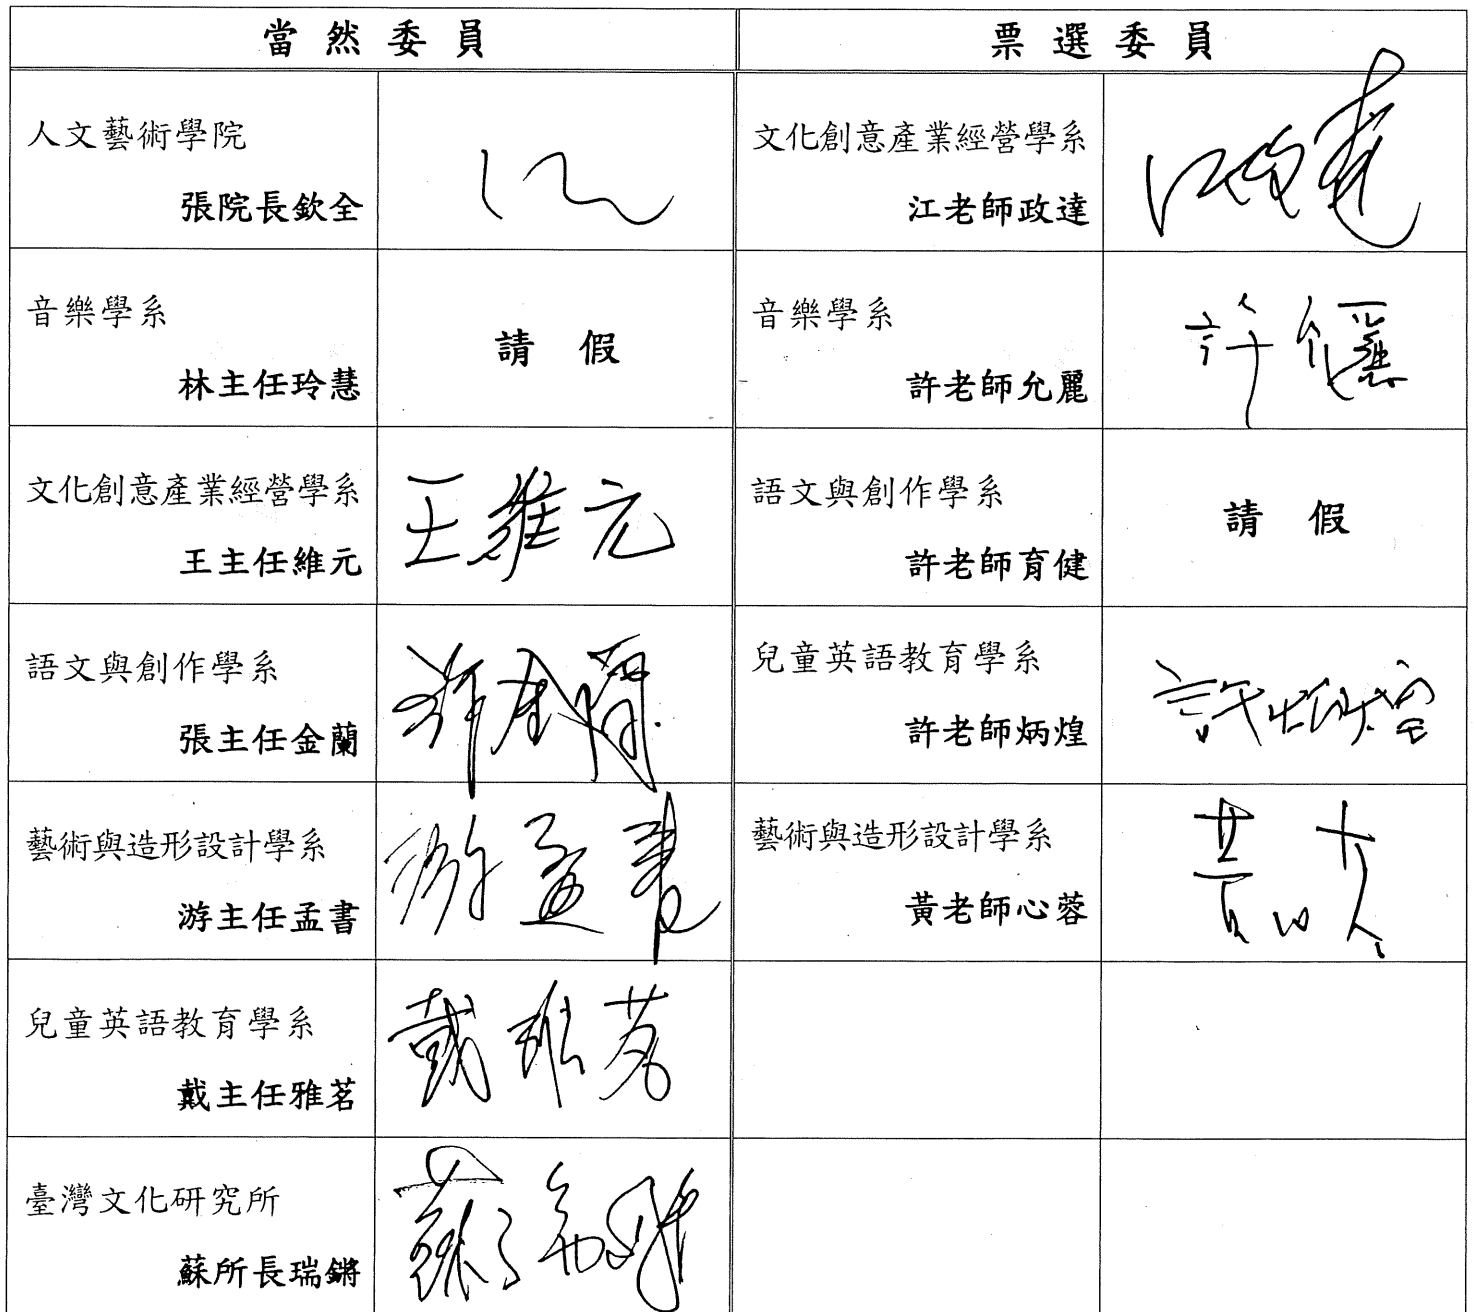 當然委員
票選委員
人文藝術學院
張院長欽全
文化創意產業經營學系
江老師政達
音樂學系
林主任玲慧
請假
音樂學系
許老師允麗
許
文化創意產業經營學系
王主任維元
王維元
語文與創作學系
許老師育健
請假
語文與創作學系
張主任金蘭
兒童英語教育學系
許老師炳煌
許炳煌
藝術與造形設計學系
游主任孟書
游孟書
藝術與造形設計學系
黃老師心蓉
兒童英語教育學系
戴主任雅茗
戴雅茗
臺灣文化研究所
蘇所長瑞鏘